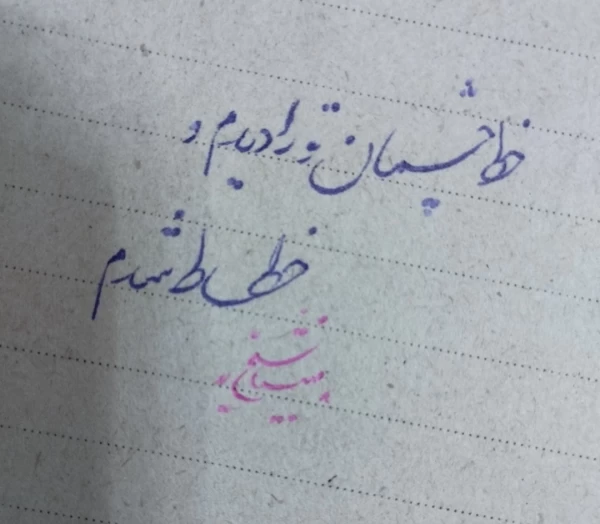 خط چشمان تو را دیدم و
خطاط شدم